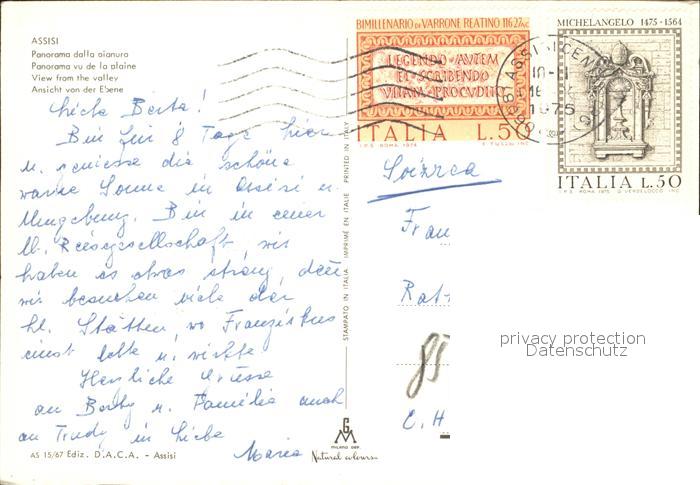 ASSISI
Panorama dalla pianura
Panorama vu de la plaine
View from the valley
Ansicht von der Ebene
Liebe Berta!
Bin für 8 Tage hier
u. geniesse die schöne
warme Sonne in Assisi u.
Umgebung. Bin in einer
Reisegesellschaft, wir
haben es etwas streng, denn
wir besuchen viele der
hl. Stätten, wo Franziskus
einst lebte u. wirkte
Herzliche Grüsse
an Bethy u. Familie auch
an Trudy in Liebe
Maria
AS 15/67 Ediz. D.A.C.A. - Assisi
STAMPATO IN ITALIA IMPRIMÉ EN ITALIE PRINTED IN ITALY
GM
MILANO DEP.
Natural colours
BIMILLENARIO DI VARRONE REATINO 116 27 A.C.
LEGENDO AVTEM
ET SCRIBENDO
VITAM PROCVDITO
ITALIA L.50
I.P.S. ROMA 1974
MICHELANGELO 1475-1564
ITALIA L.50
I.P.S. ROMA 1975
ASSISI
1975
Svizzra
Frau
Rat
85
C.H
privacy protection
Datenschutz